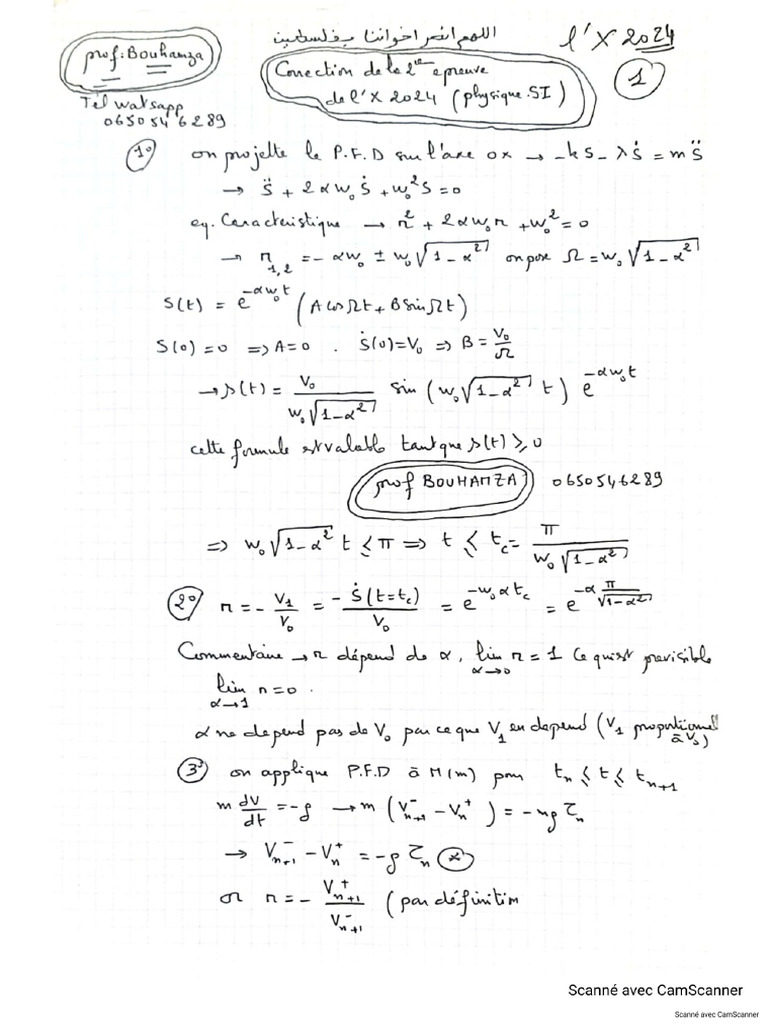 اللهم انصر اخواننا بفلسطين
prof: Bouhamza
l'X 2024
Correction de la 2ème epreuve
de l'X 2024 (physique.SI)
1
Tél watsapp
0650546289
1° on projette le P.F.D sur l'axe ox → -ks - λṡ = m s̈
→ s̈ + 2αω₀ṡ + ω₀²s = 0
eq. Caracteristique → r² + 2αω₀r + ω₀² = 0
→ r₁,₂ = -αω₀ ± ω₀√(1-α²) on pose Ω = ω₀√(1-α²)
S(t) = e^(-αω₀t) (A cos Ωt + B sin Ωt)
S(0) = 0 => A = 0 . Ṡ(0) = V₀ => B = V₀/Ω
→ s(t) = V₀/(ω₀√(1-α²)) sin (ω₀√(1-α²) t) e^(-αω₀t)
cette formule est valable tant que s(t) ⩾ 0
prof BOUHAMZA 0650546289
=> ω₀√(1-α²) t ⩽ π => t ⩽ t_c = π/(ω₀√(1-α²))
2° r = -V₁/V₀ = -Ṡ(t=t_c)/V₀ = e^(-ω₀αt_c) = e^(-α π/√(1-α²))
Commentaire → r dépend de α, lim_(α→0) r = 1 ce qui est previsible
lim_(α→1) r = 0 .
α ne depend pas de V₀ par ce que V₁ en depend (V₁ proportionnel
à V₀)
3° on applique P.F.D à M(m) pour t_n ⩽ t ⩽ t_(n+1)
m dV/dt = -g → m (V⁻_(n+1) - V⁺_n) = -mg τ_n
→ V⁻_(n+1) - V⁺_n = -g τ_n (*)
or r = - V⁺_(n+1)/V⁻_(n+1) (par définition
Scanné avec CamScanner
Scanné avec CamScanner